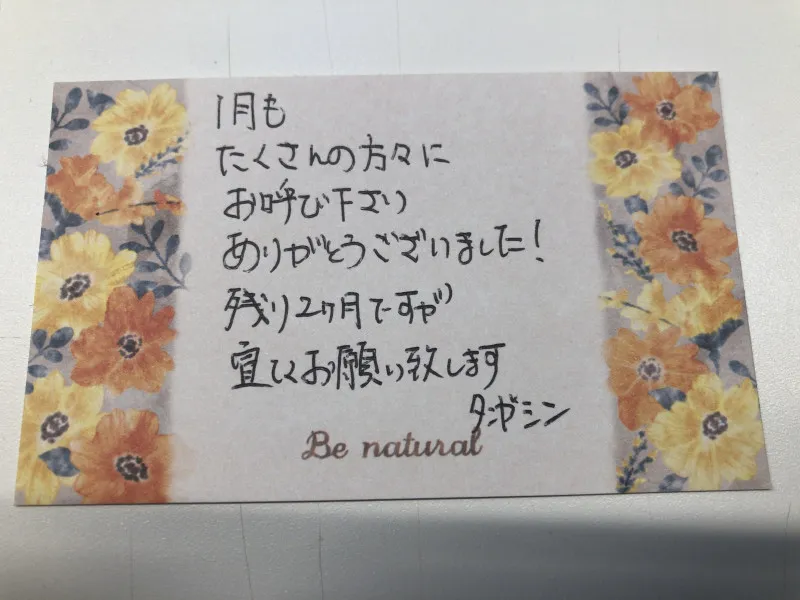 1月も
たくさんの方々に
お呼び下さり
ありがとうございました!
残り2ヶ月ですが
宜しくお願い致します
タンガシン
Be natural